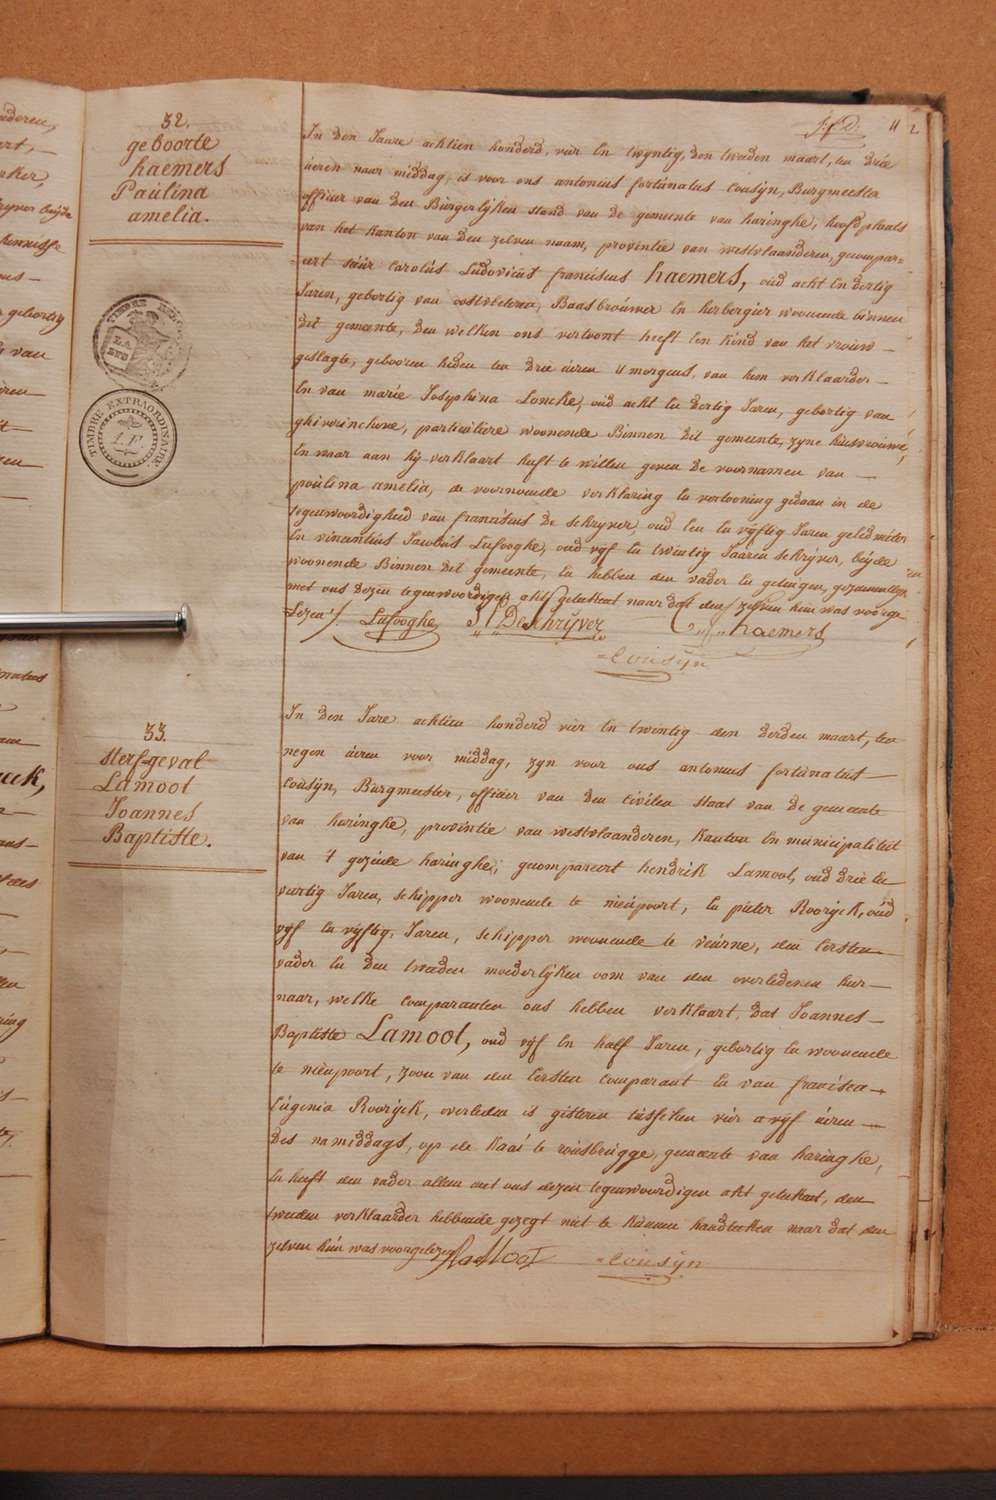 32.
geboorte
haemers
Paulina
amelia.
TIMBRE EXTRAORDINAIRE
In den Jaare achtien honderd, vier En twyntig, den tweden maart, ten drie
üeren naer middag, is voor ons antonius fortünatus Cousÿn, Burgmeester
officier van den Bürgerlÿken stand van de gemeente van haringhe, hoofdplaats
van het kanton van den zelven naam, provintie van westvlaanderen, gecompar-
eert sieür Carolüs Ludovicüs franciscus haemers, oüd acht En dertig
Jaren, gebortig van oostvleteren, Baasbroüwer En herbergier woonende binnen
dit gemeente, den welken ons vertoont heeft Een kind van het vrouw-
geslagte, gebooren heden ten drie üeren 's morgens, van hem verklaarder-
En van marie Josephina Loncke, oüd acht En dertig Jaren, gebortig van
ghiverinchove, particüliere woonende Binnen dit gemeente, zyne hüisvroüwe,
En waar aan hÿ verklaart heeft te willen geven de voornamen van -
paülina amelia, de voornoemde verklaring En vertooning gedaan in de
tegenwoordigheid van franciscüs De schrÿver, oud Een En vÿftig Jaren geldmeter
En vincentius Jacobüs Lafooghe, oud vÿf En twintig Jaaren schrÿver, beÿde
woonende Binnen dit gemeente, En hebben den vader En getuigen, gezamentlyk
met ons dezen tegenwoordigen akt geteekent naar dat den zelven hün was voorge-
Lezen /. Lafooghe F DeSchrÿver C. L. F. haemers
Cousÿn
33.
sterf-geval
Lamoot
Joannes
Baptiste.
In den Jare achtien honderd vier En twintig den derden maart, ten
negen üeren voor middag, zyn voor ons antonius fortünatüs
Coüsÿn, Bürgmeester, officier van den Civilen staat van de gemeente
van haringhe, provintie van westvlaanderen, kanton En municipaliteit
van 't gezeide haringhe, gecompareert hendrik Lamoot, oud drie En
veertig Jaren, schipper woonende te nieüpoort, En pieter Roorÿck, oüd
vÿf En vÿftig Jaren, schipper woonende te veürne, den Eersten
vader En den tweeden moederlÿken oom van den overledenen hier-
naar, welke comparanten ons hebben verklaart, dat Joannes-
Baptiste Lamoot, oud vÿf En half Jaren, gebortig En woonende
te nieupoort, zoon van den Eersten comparant En van francisca-
Eügenia Roorÿck, overleden is gisteren tüsschen vier a vÿf üren -
des namiddags, op de kaai te roüsbrügge, gemeente van haringhe,
En heeft den vader alleen met ons dezen tegenwoordigen akt geteekent, den
tweeden verklaarder hebbende gezegt niet te künnen handteeken naar dat den
zelven hün was voorgelezen H LaMOOT Cousÿn